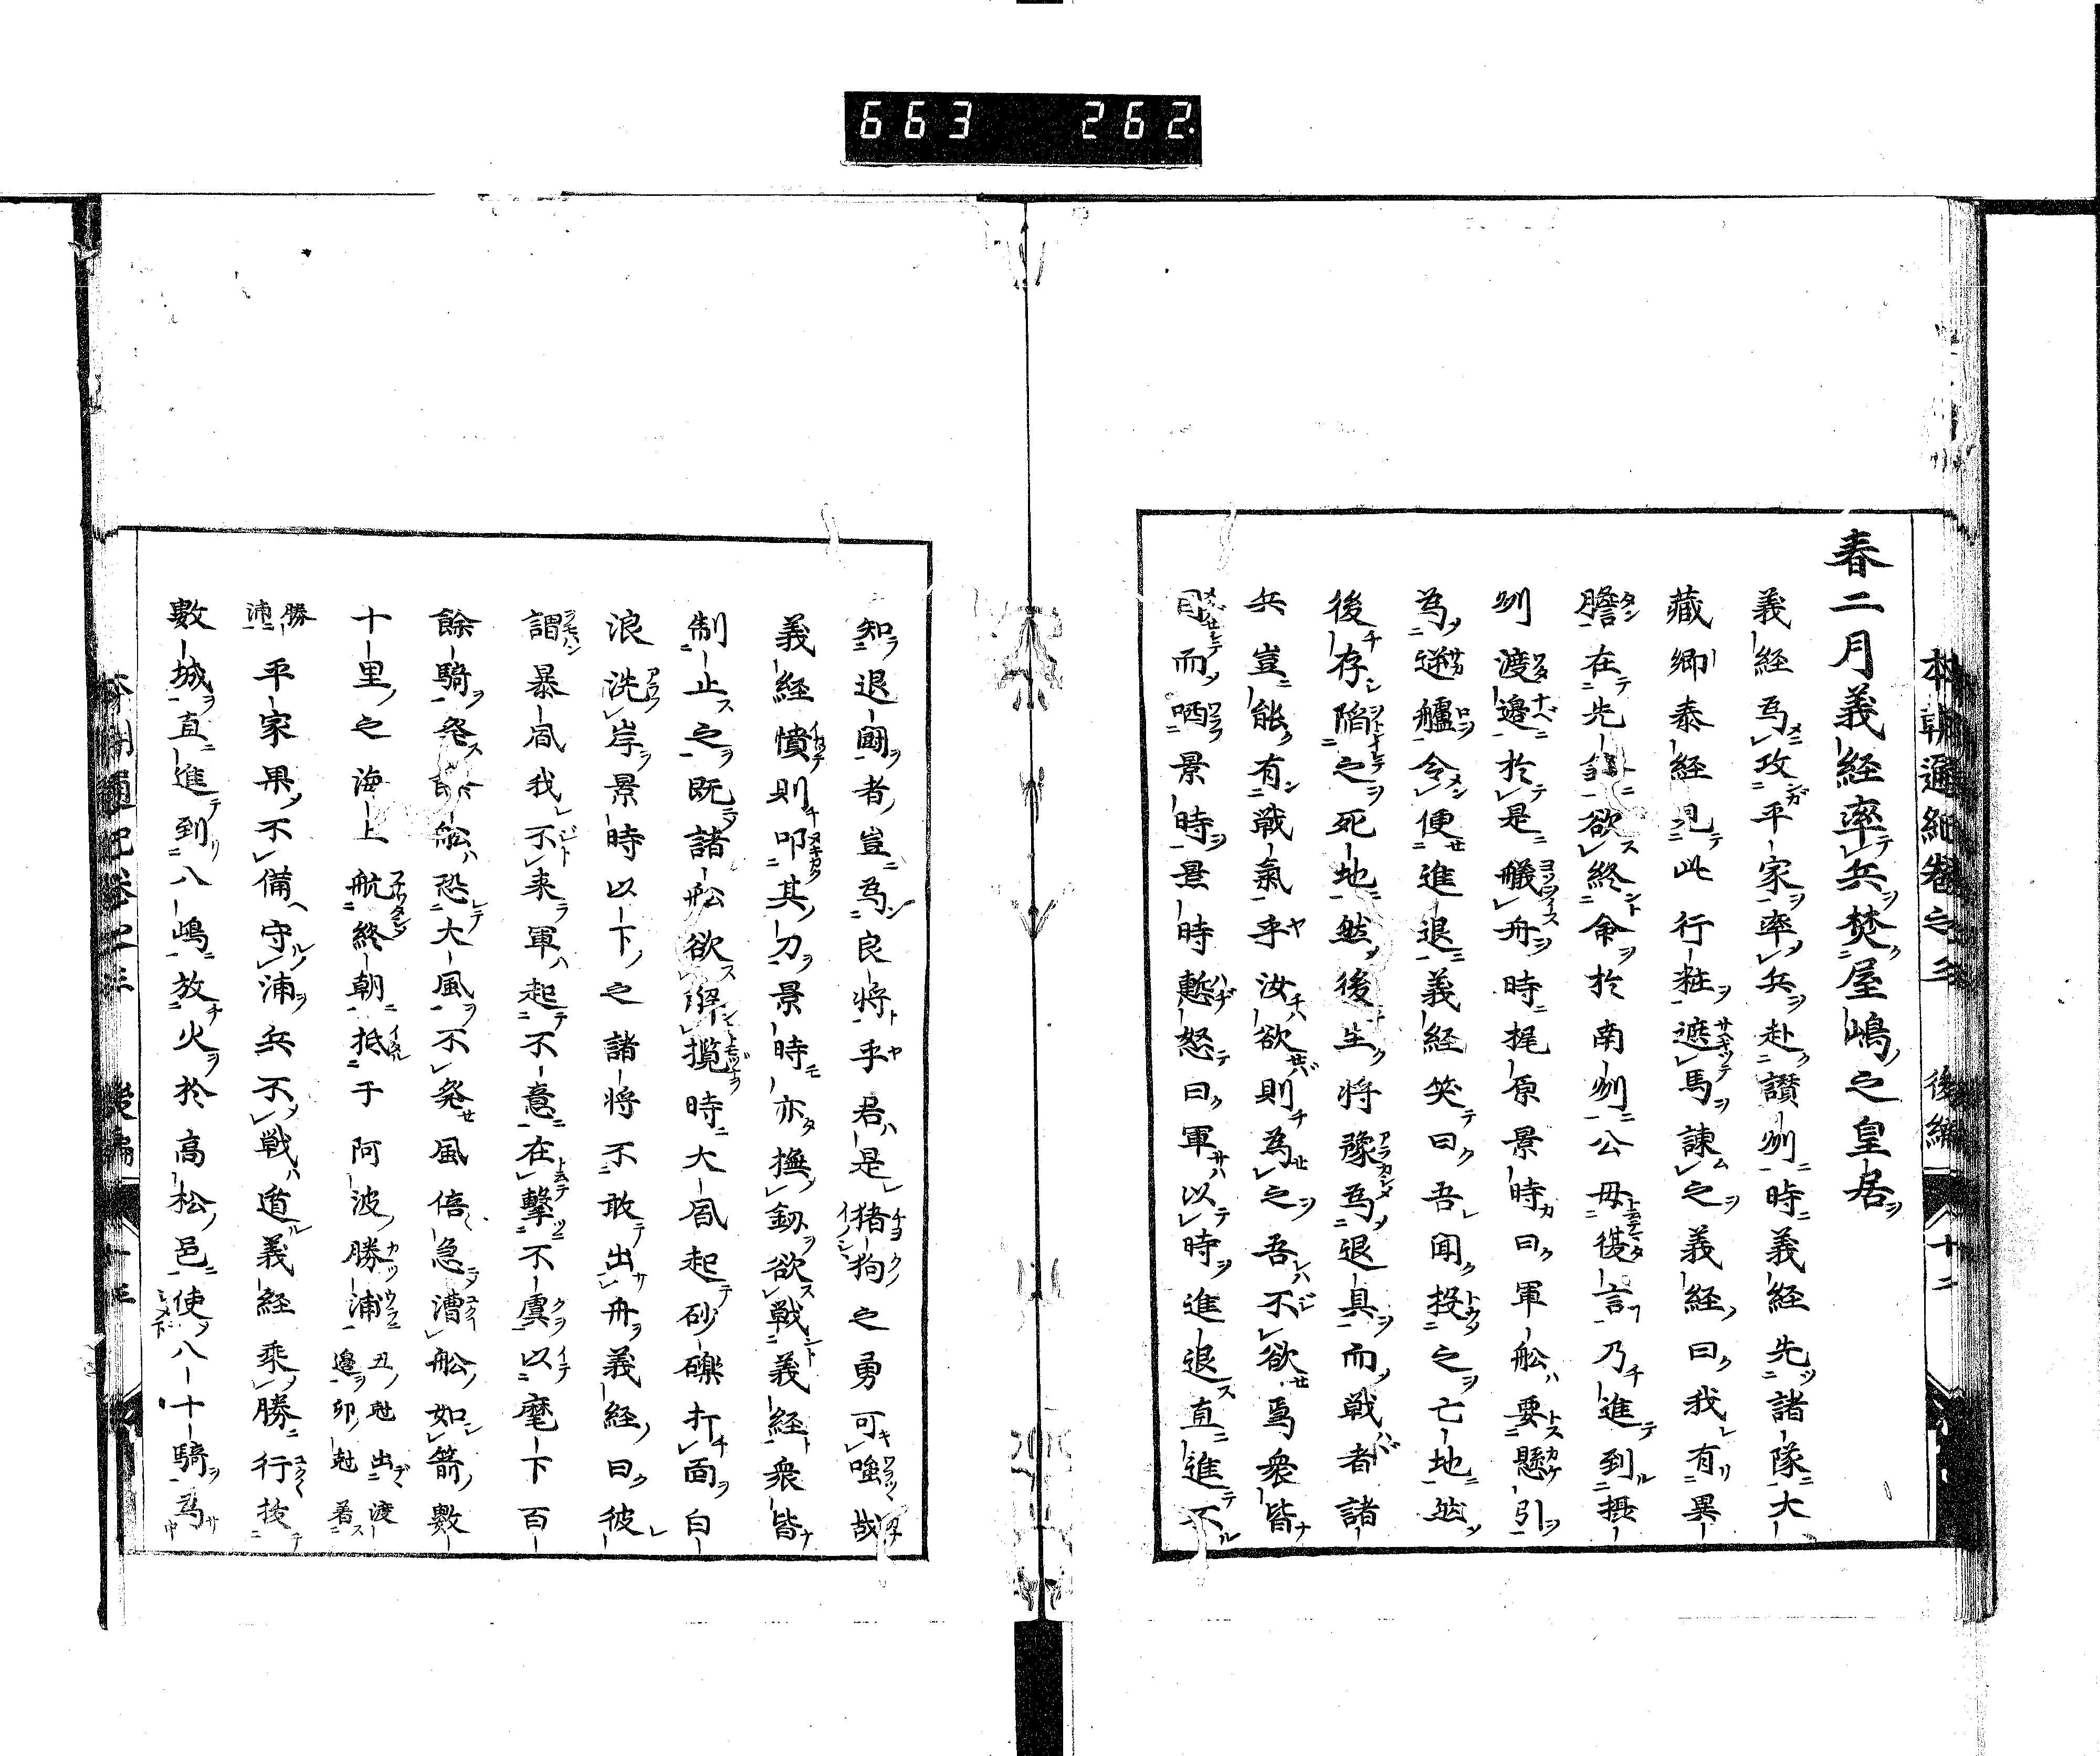 663 262.
本朝通紀卷之三 後編 十二
春二月義経率兵焚屋嶋之皇居
義経為攻平家率兵赴讃州時義経先諸隊大
藏卿泰経見此行粧遮馬諫之義経曰我有異
膽在先欲終命於南州公毋從言乃進到摂
州渡邉於是艤舟時梶原景時曰軍舩要懸引
為逆艫令便進退義経笑曰吾聞投之亡地然
後存陥之死地然後生将豫為退具而戦者諸
兵豈能有戰氣乎汝欲則為之吾不欲焉衆皆
而哂景時景時慙怒曰軍以時進退直進不
知退者豈為良将乎君是猪狗之勇可嗤哉
義経憤則叩其刀景時亦撫釼欲戦義経衆皆
制止之既諸舩欲解纜時大風起砂礫打面白
浪洗岸景時以下之諸将不敢出舟義経曰彼
謂暴風我不来軍起不意在撃不虞以麾下百
餘騎発舩恐大風不発風倍急漕舩如箭數
十里之海上航終朝抵于阿波勝浦丑尅出渡邉卯尅着
勝浦平家果不備守浦兵不戦遁義経乘勝行抜
數城直進到八嶋放火於高松邑使八十騎為
後編